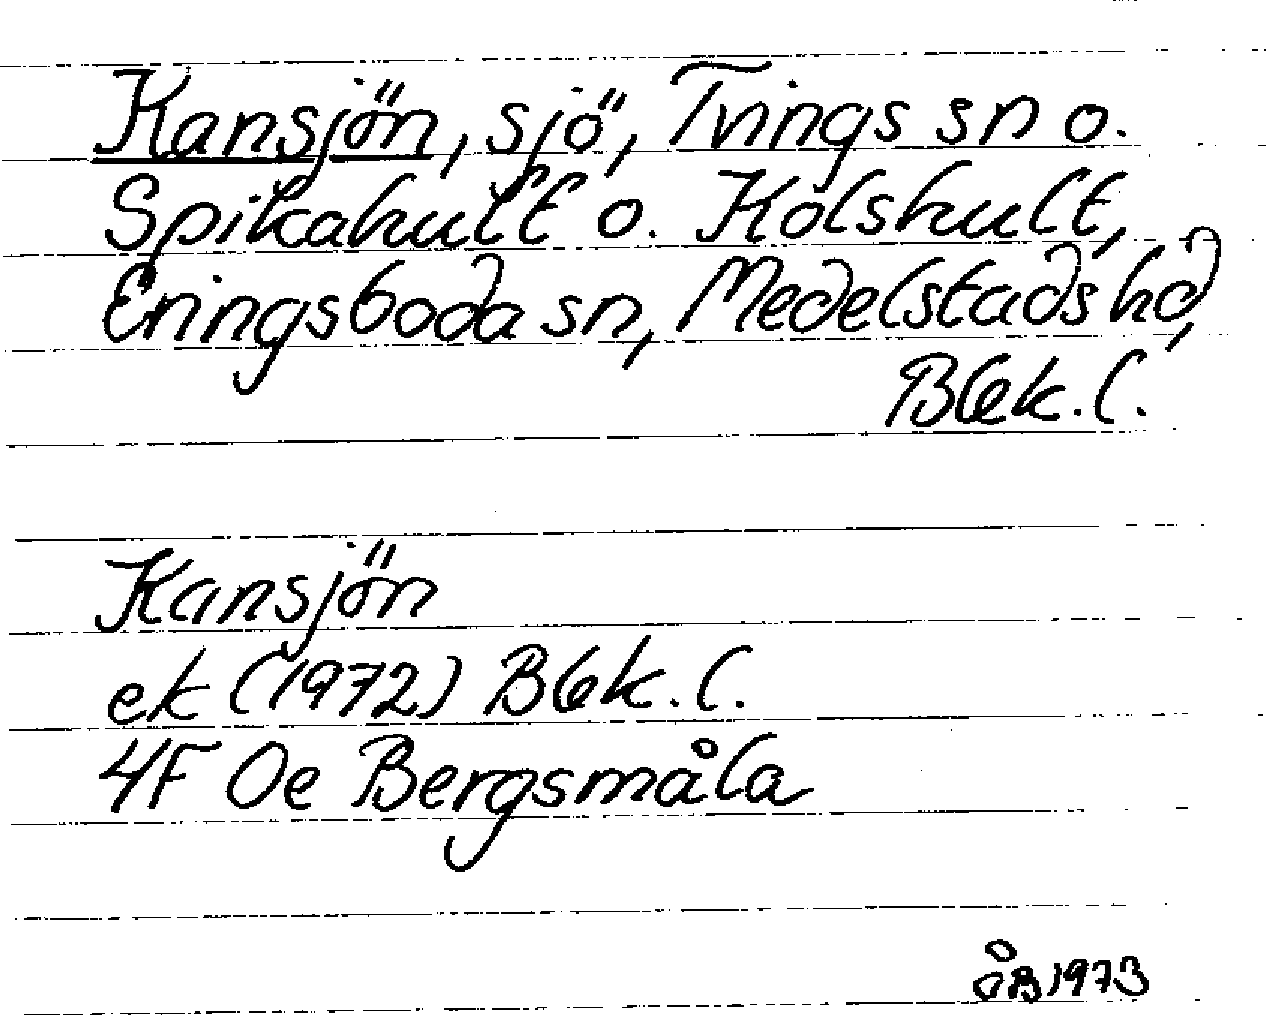 Kansjön, sjö, Tvings sn o.
Spikahult o. Kolshult,
Eringsboda sn, Medelstads hd,
Blek. l.
Kansjön
ek (1972) Blek. l.
4F Oe Bergsmåla
ÅB 1973